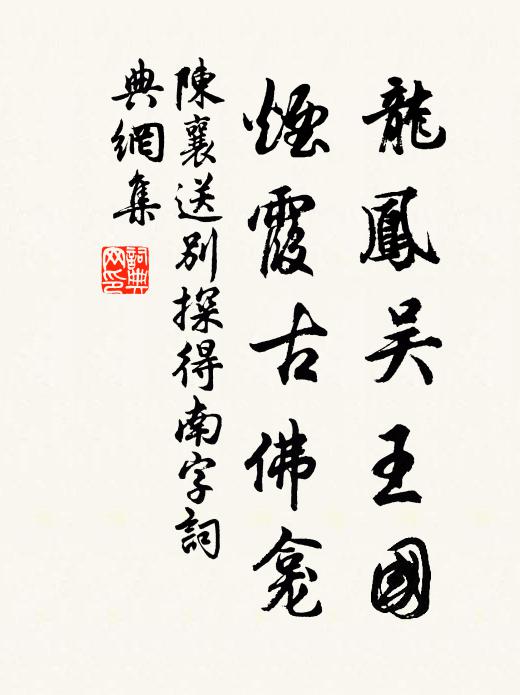 龍鳳吳王國
煙霞古佛龕
陳襄送別探得南字詞
典網集
詞典
网印